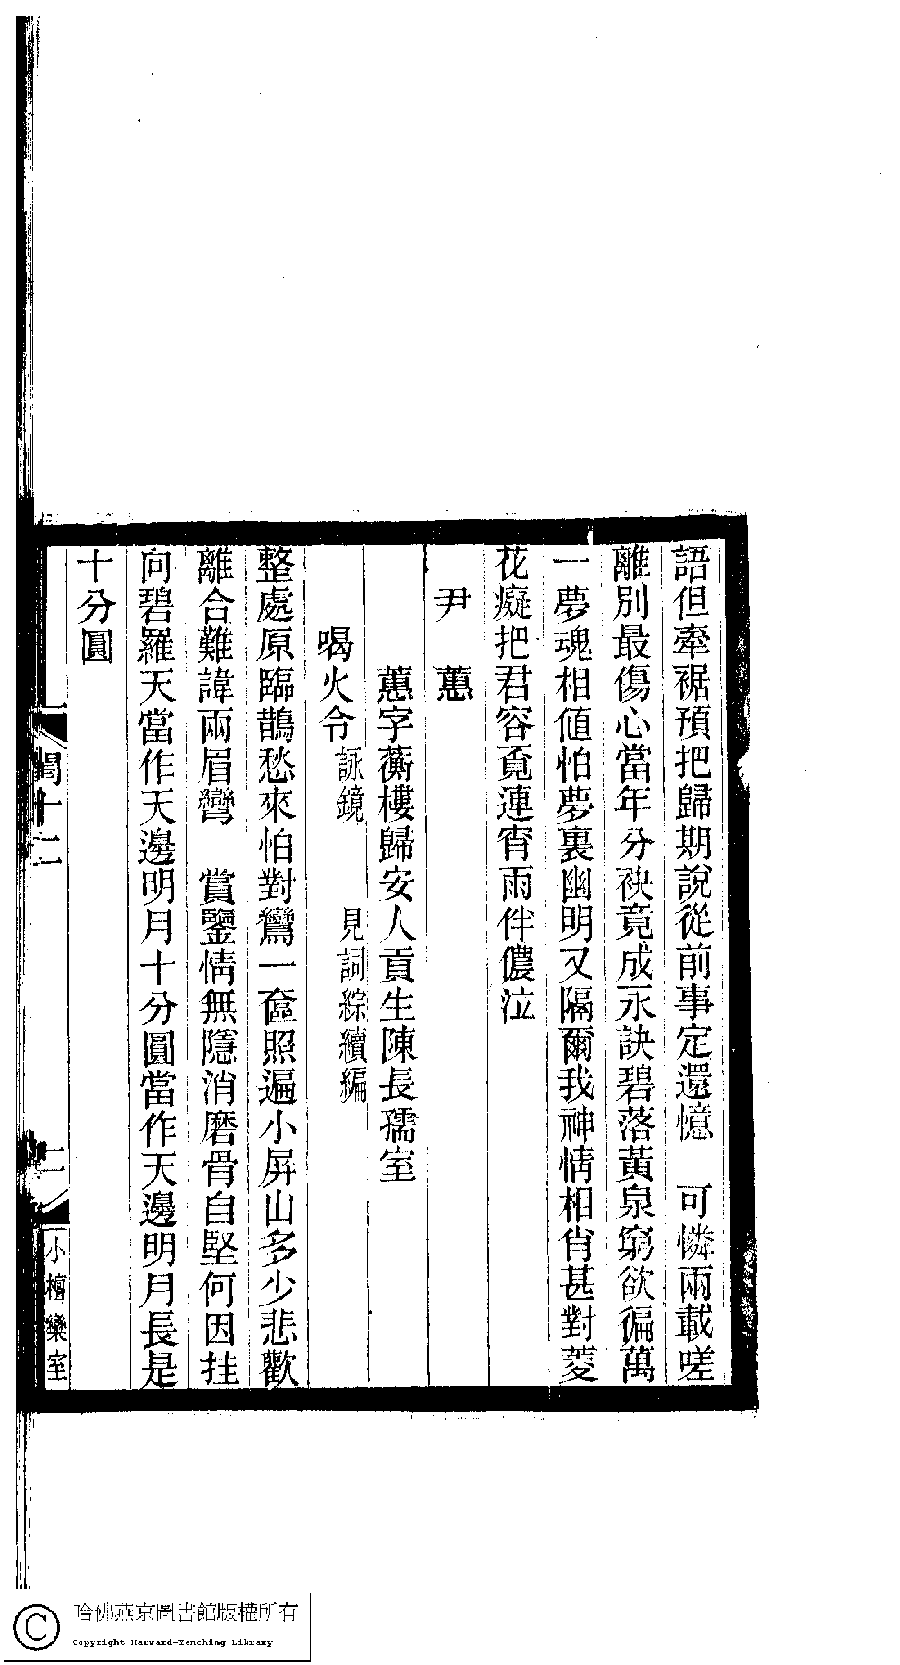 語但牽裾預把歸期說從前事定還憶　可憐兩載嗟
離別最傷心當年分袂竟成永訣碧落黃泉窮欲徧萬
一夢魂相値怕夢裏幽明又隔爾我神情相肖甚對菱
花癡把君容覓連宵雨伴儂泣
尹　蕙
蕙字蘅樓歸安人貢生陳長孺室
喝火令詠鏡　見詞綜續編
整處原臨鵲愁來怕對鸞一奩照遍小屏山多少悲歡
離合難諱兩眉彎　賞鑒情無隱消磨骨自堅何因挂
向碧羅天當作天邊明月十分圓當作天邊明月長是
十分圓
閨十二
二
小檀欒室
哈佛燕京圖書館版權所有
Copyright Harvard-Yenching Library